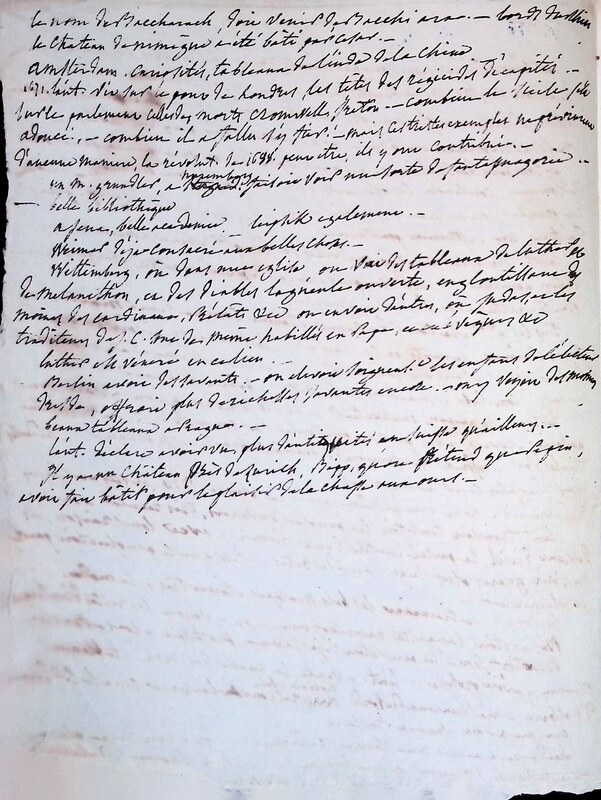 le nom de Baccharach, doit venir de Bacchi ara. — bords du Rhin
le Chateau de nimegue a été bati par Cesar. —
amsterdam. curiosités, tableaux de l'inde de la Chine
1671. l'aut. vit sur le pont de Londres, les têtes des regicides décapités. —
sur le parlement celles des morts Cromwell, Ireton. — combien le siecle s'est
adouci. — combien il a fallu s'y faire. — mais ces tristes exemples ne prévinrent
d'aucune maniere, la révolut. de 1688. peut etre, ils y ont contribué. —
un M. grundler, a nuremberg faisoit voir une sorte de fantasmagorie. —
— belle bibliothèque
a jena, belle academie — leipsik egalement. —
Weimar déja consacré aux belles choses. —
Wittemberg, où dans une eglise, on voit des tableaux de Luther
de melancthon, et des diables la gueule ouverte, engloutissant des
moines des cardinaux, Prelats &c on en voit d'autres, où judas et les
traditeurs de J. C. sont de même habillés en Pape, et en évêques &c
luther est vénéré en ce lieu. —
Berlin avoit des savants. — on élevoit les enfans de l'électeur
Dresde, offroit plus de richesses savantes encore. — on y voyoit des momies
beaux tableaux a Prague. —
l'aut. déclare avoir vu plus d'antiquités en suisse qu'ailleurs. —
Il y a un château près de Zurich, que l'on prétend que Pepin,
avoit fait bâtir pour le plaisir de la chasse aux ours. —